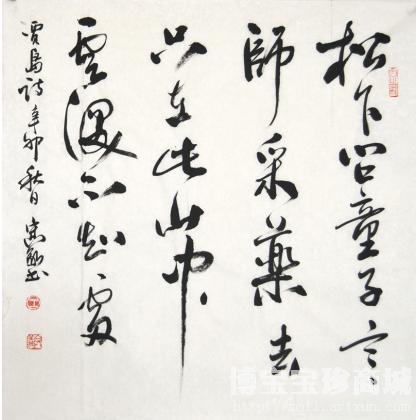 松下問童子言
師采藥去
只在此山中
雲深不知處
賈島詩辛卯秋日
博宝宝珍商城